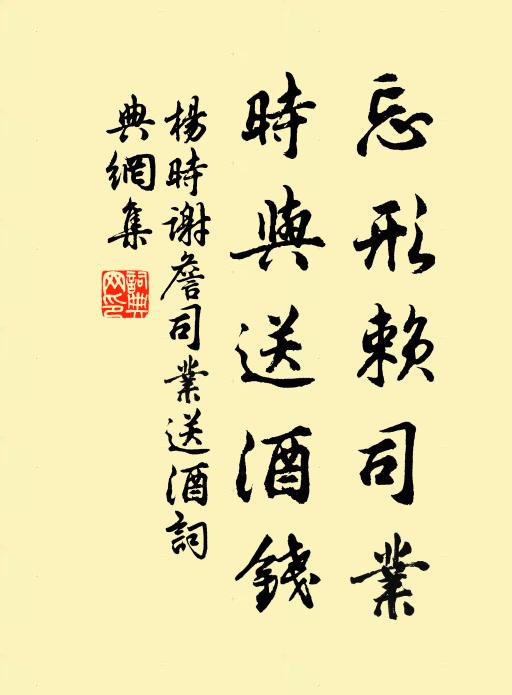 忘形賴司業
時與送酒錢
楊時謝詹司業送酒詞
典網集
詞典网印